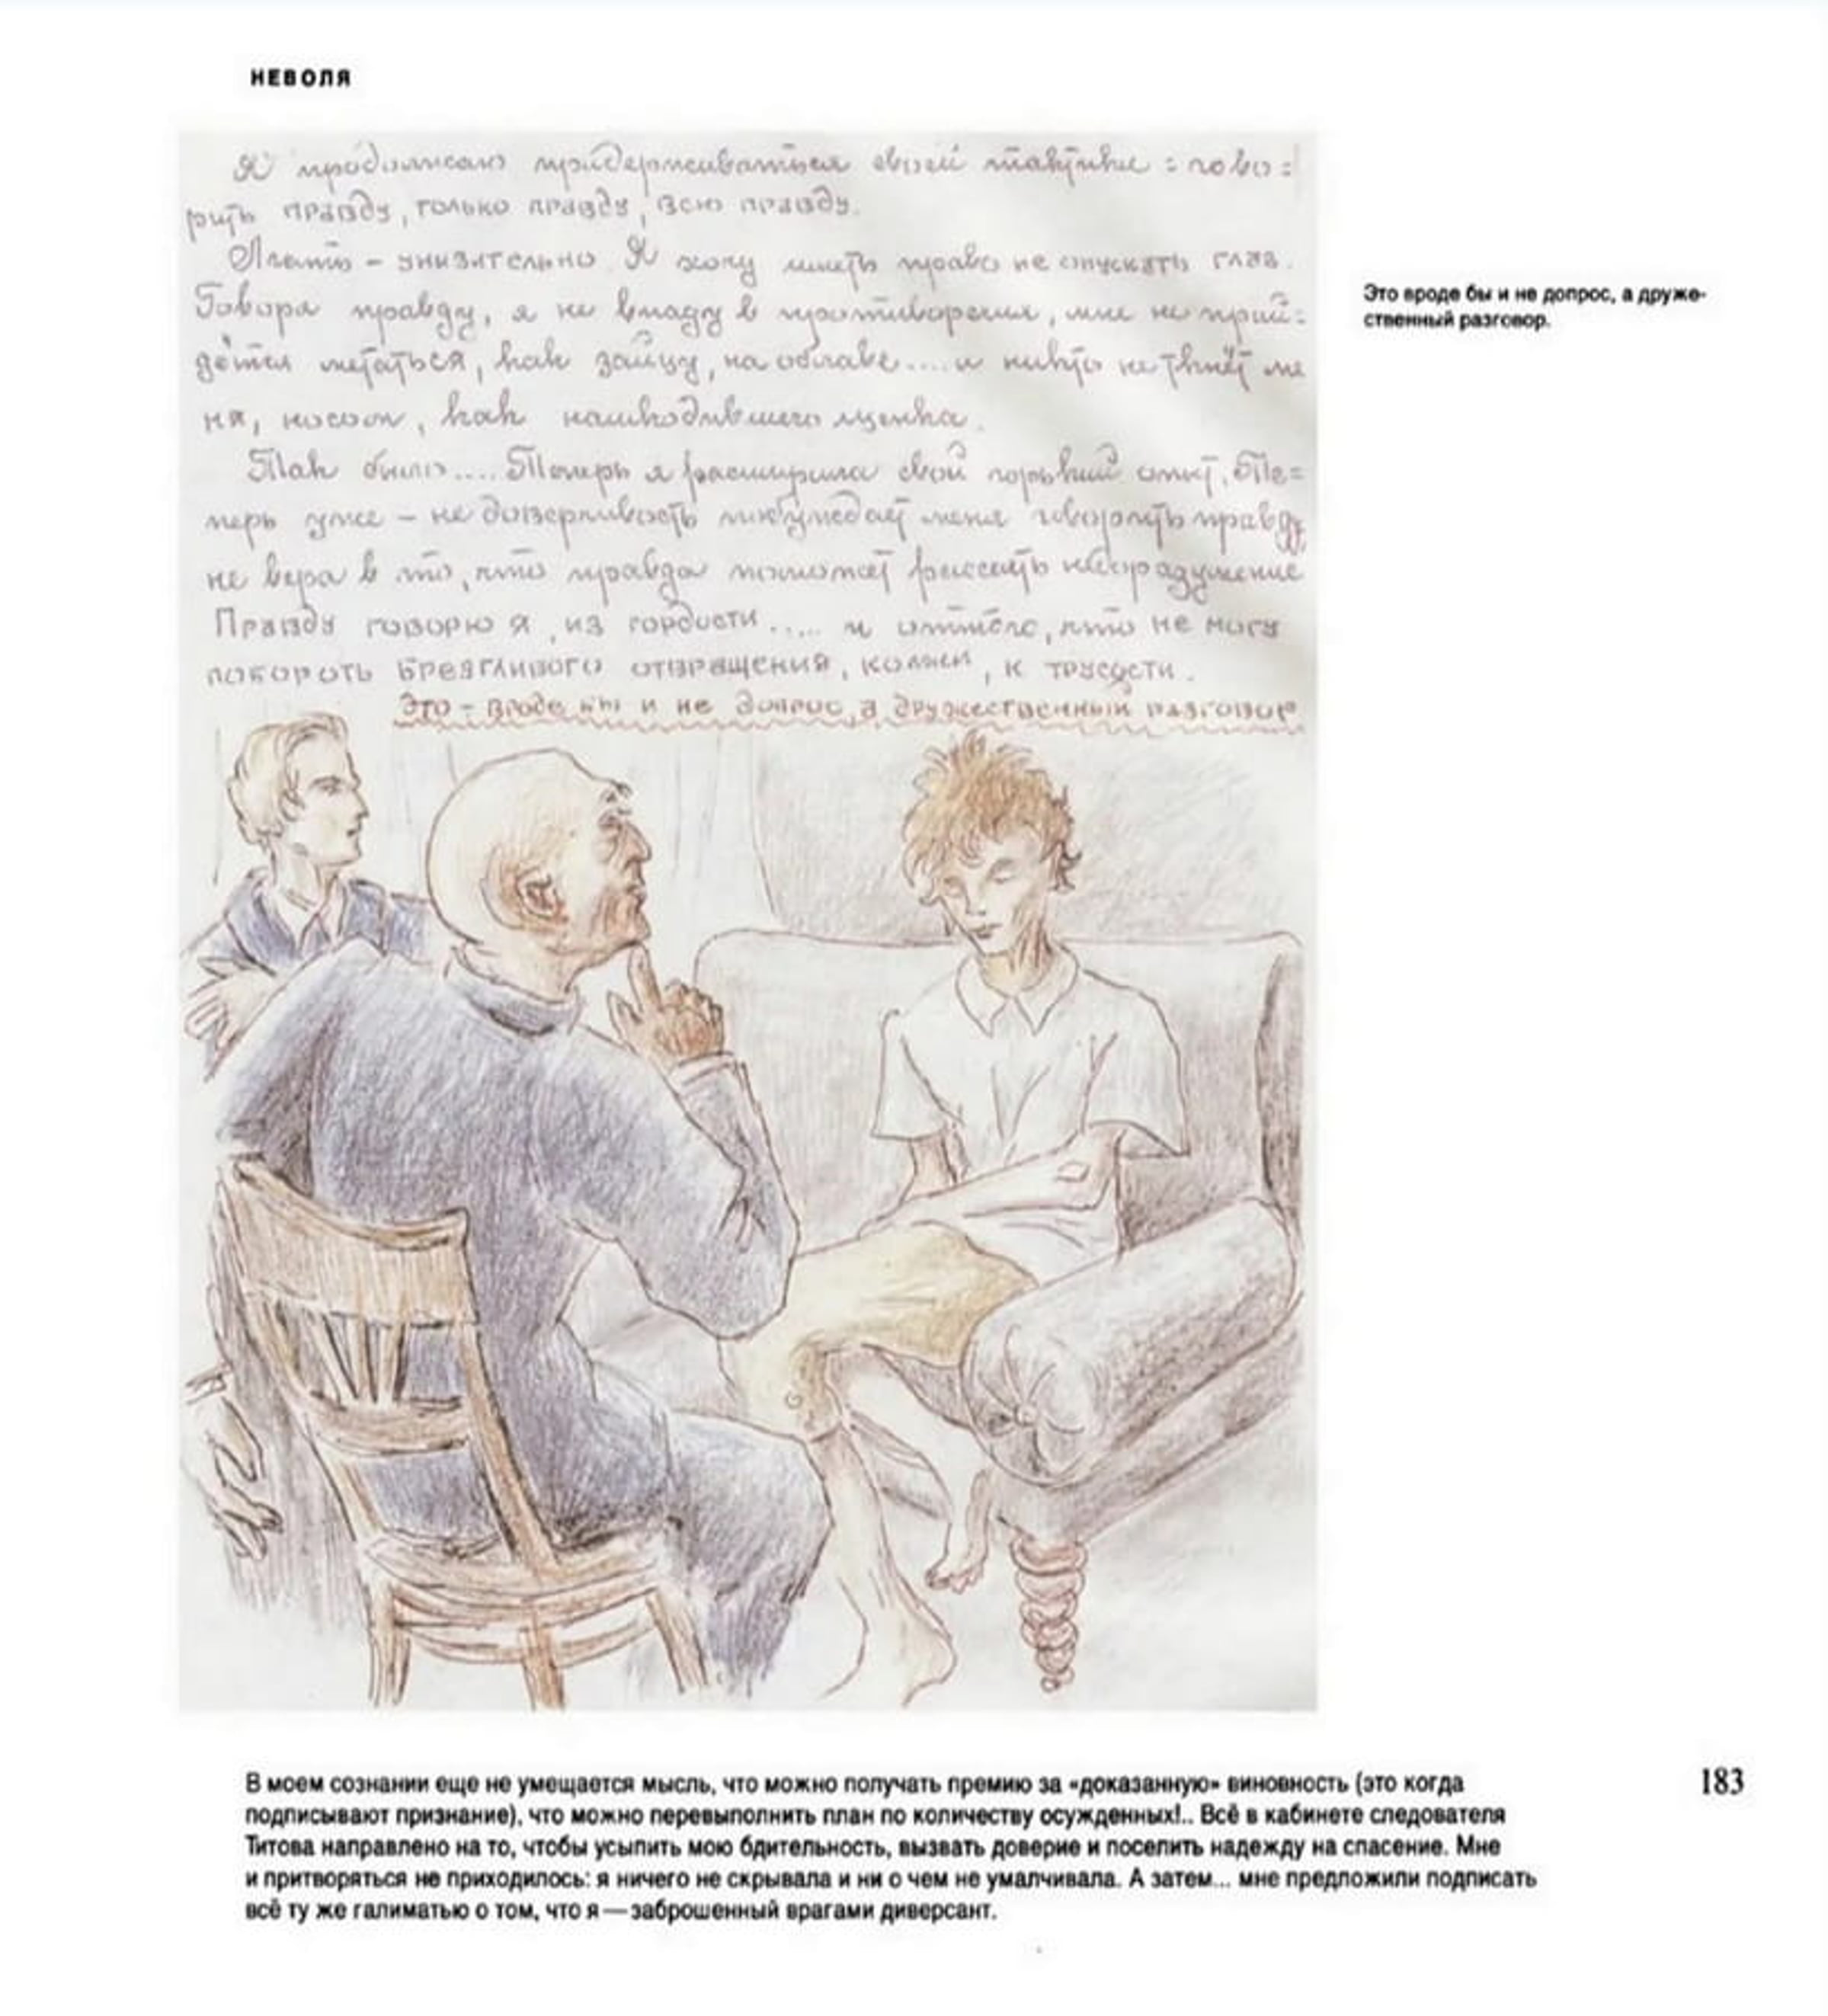 НЕВОЛЯ
Я продолжаю придерживаться своей тактики = гово=
рить правду, только правду, всю правду.
Лгать – унизительно. Я хочу иметь право не опускать глаз.
Говоря правду, я не впаду в противоречия, мне не прий=
дётся метаться, как зайцу, на облаве.... и никто не ткнёт ме
ня, носом, как нашкодившего щенка.
Так было.... Теперь я расширила свой горький опыт. Те=
перь уже – не доверчивость побуждает меня говорить правду,
не вера в то, что правда поможет рассеять недоразумение
Правду говорю я, из гордости ..... и оттого, что не могу
побороть брезгливого отвращения, ко лжи, к трусости.
Это – вроде бы и не допрос, а дружественный разговор
Это вроде бы и не допрос, а друже-
ственный разговор.
В моем сознании еще не умещается мысль, что можно получать премию за «доказанную» виновность (это когда
подписывают признание), что можно перевыполнить план по количеству осужденных!.. Всё в кабинете следователя
Титова направлено на то, чтобы усыпить мою бдительность, вызвать доверие и поселить надежду на спасение. Мне
и притворяться не приходилось: я ничего не скрывала и ни о чем не умалчивала. А затем... мне предложили подписать
всё ту же галиматью о том, что я — заброшенный врагами диверсант.
183